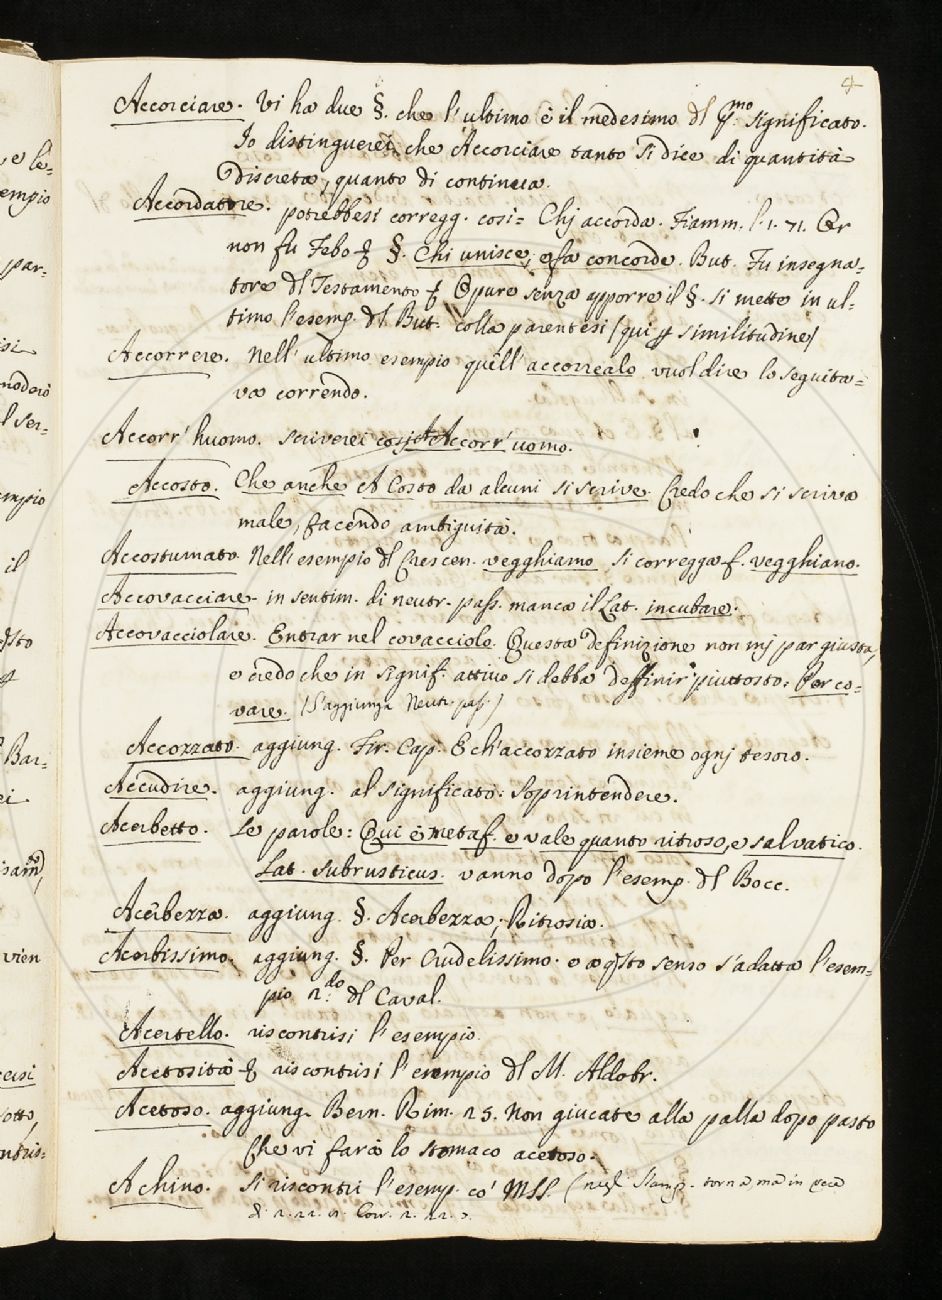 4
Accorciare. Vi ha due §. che l'ultimo è il medesimo dl p.mo significato.
Io distinguerei, che Accorciare tanto si dice di quantità
Discreta, quanto di continua.
Accordatore. potrebbesi corregg. così= Chj accorda. Fiamm. l. 1. 71. Or
non fu Febo §. Chi unisce, e fa concorde. But. Fu insegna=
tore dl Testamento Opure senza apporre il §. si mette in ul=
timo l'esemp. dl But. colla parentesi (qui p similitudine)
Accorrere. Nell'ultimo esempio quell'accorrealo vuol dire lo seguita=
va correndo.
Accorr'huomo. scriverei così Accorr'uomo.
Accosto. Che anche A Costo da alcuni si scrive. Credo che si scriva
male, facendo ambiguità.
Accostumato. Nell'esempio dl Crescen. vegghiamo si corregga f. vegghiano.
Accovacciare. in sentim. di neutr. pass. manca il Lat. incubare.
Accovacciolare. Entrar nel covacciolo. Questa definizione non mj par giusta,
e credo che in signif. attivo si debba deffinir piuttosto: Per co=
vare. (S'aggiunga Neutr. pass.)
Accozzato. aggiung. Fir. Cap. E ch'accozzato insieme ognj tesoro.
Accudire. aggiung. al significato: Soprintendere.
Acerbetto. Le parole: Qui è metaf. e vale quanto ritroso, e salvatico.
Lat. subrusticus. vanno dopo l'esemp. dl Bocc.
Acerbezza. aggiung. §. Acerbezza; Ritrosia.
Acerbissimo. aggiung. §. Per Crudelissimo. e a qsto senso s'adatta l'esem=
pio 2.do dl Caval.
Acertello. riscontrisi l'esempio.
Acetosità riscontrisi l'esempio dl M. Aldobr.
Acetoso. aggiung. Bern. Rim. 25. Non giucate alla palla dopo pasto
Che vi farà lo stomaco acetoso.
Achino. Si riscontri l'esemp. co' MSS. (negl' Stamp. torna, ma in